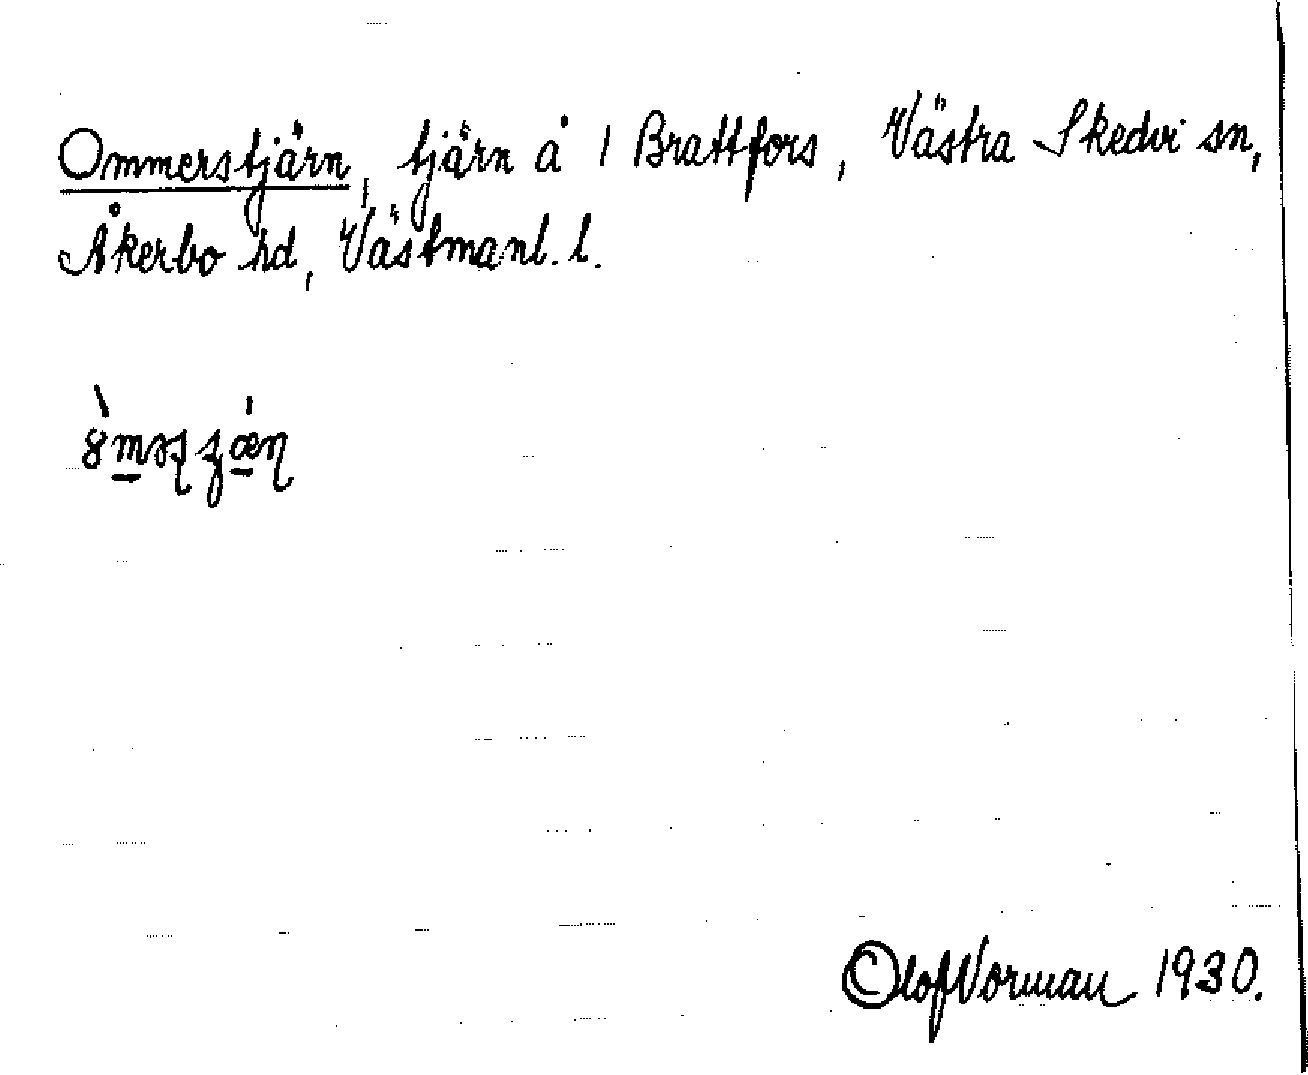 Ommerstjärn, tjärn å 1 Brattfors, Västra Skedvi sn,
Åkerbo hd, Västmanl. l.
Olof Norman 1930.